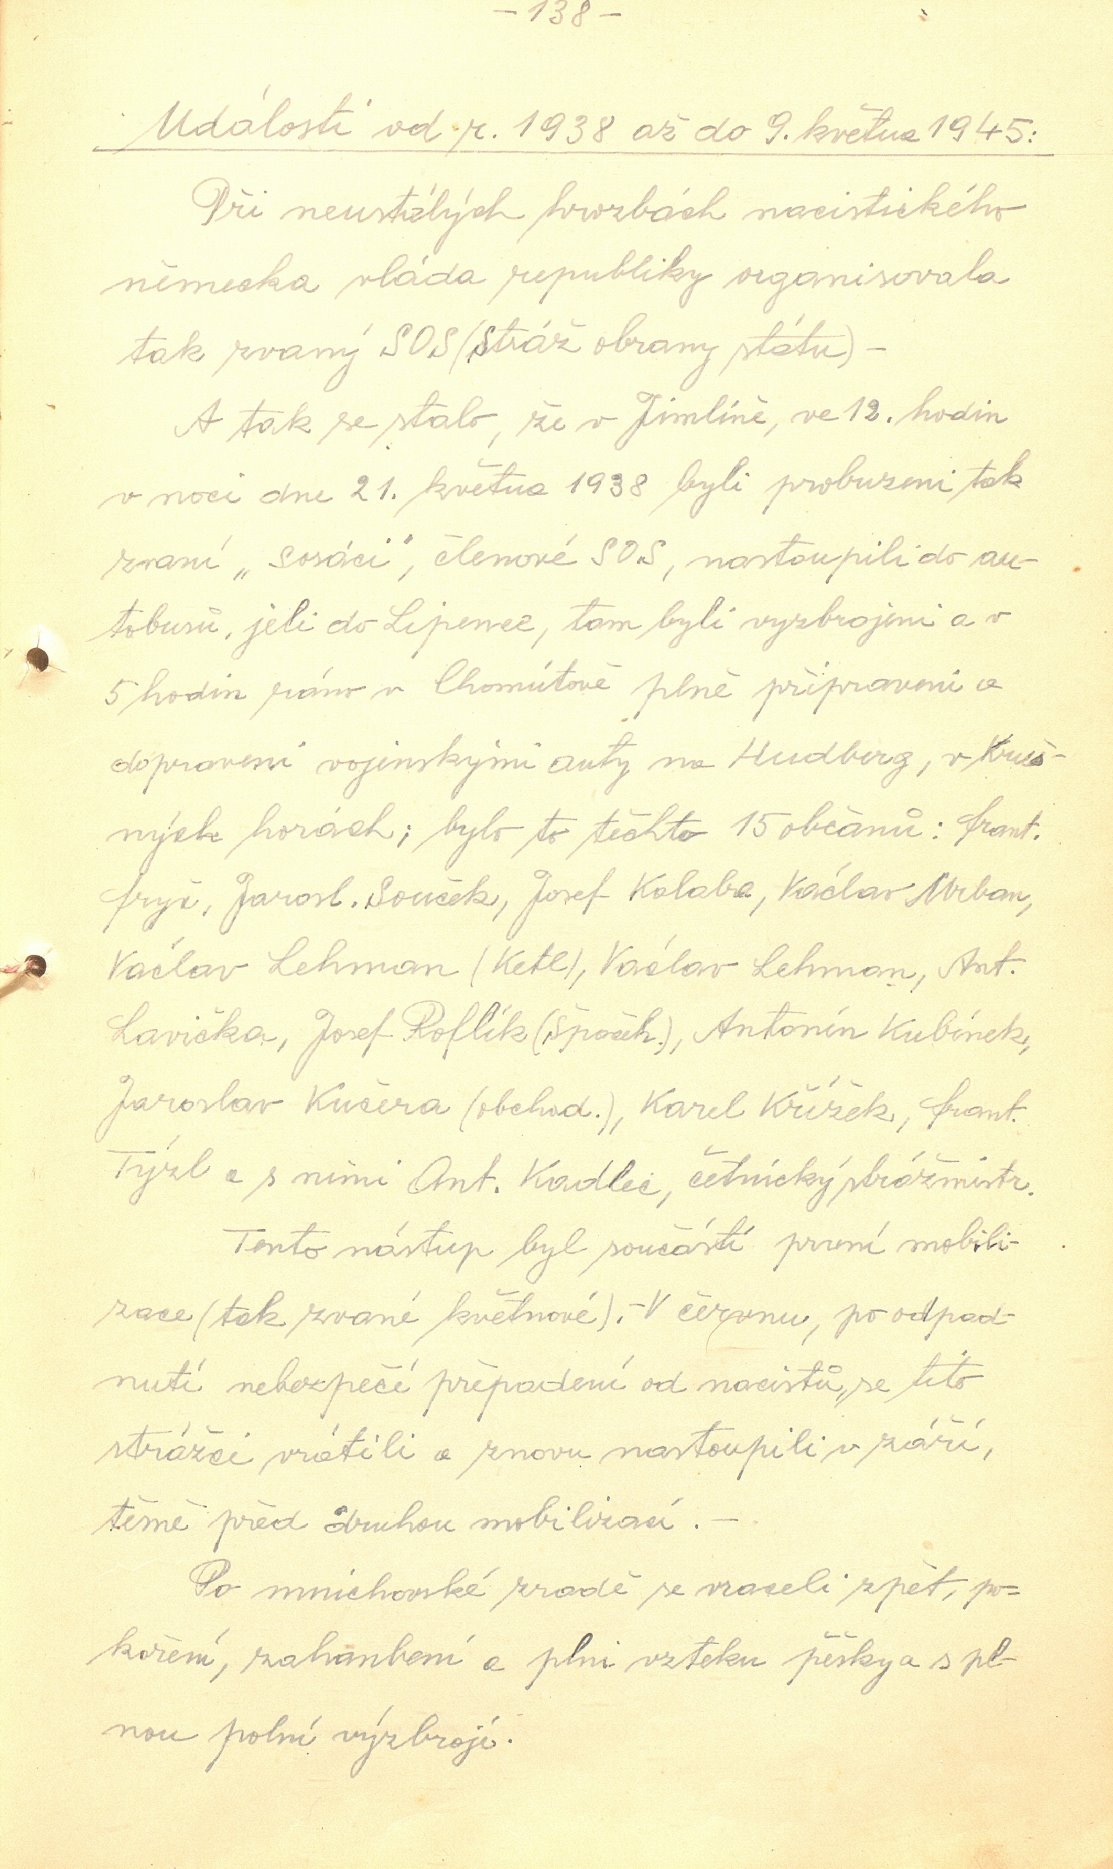 - 138 -
Události od r. 1938 až do 9. května 1945:
Při neustálých hrozbách nacistického
německa vláda republiky organisovala
tak zvaný SOS (Stráž obrany státu) -
A tak se stalo, že v Jimlíně, ve 12. hodin
v noci dne 21. května 1938 byli probuzeni tak
zvaní „sosáci", členové SOS, nastoupili do au-
tobusů, jeli do Lipence, tam byli vyzbrojeni a v
5 hodin ráno v Chomútově plně připraveni a
dopraveni vojenskými auty na Hudberg, v Kruš-
ných horách; bylo to těchto 15 občanů: Frant.
Fryč, Jarosl. Souček, Josef Kalaba, Václav Urban,
Václav Lehman (Ketl), Václav Lehman, Ant.
Lavička, Josef Roflík (Špačch.), Antonín Kubínek,
Jaroslav Kučera (obchod.), Karel Křížek, Frant.
Týzl a s nimi Ant. Kadlec, četnický strážmistr.
Tento nástup byl součástí první mobili-
zace (tak zvané květnové). - V červnu, po odpad-
nutí nebezpečí přepadení od nacistů, se tito
strážci vrátili a znovu nastoupili v září,
těmě před druhou mobilizací. -
Po mnichovské zradě se vraceli zpět, po=
kořeni, zahanbeni a plni vzteku pěšky a s pl-
nou polní výzbrojí.